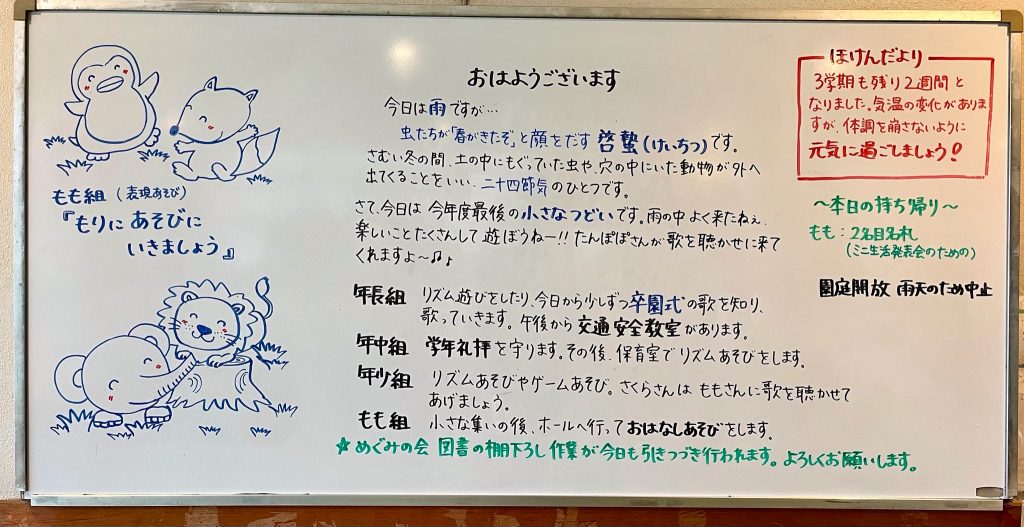 もも組 (表現あそび)
『もりに あそびに
いきましょう』
おはようございます
今日は雨ですが…
虫たちが「春がきたぞ」と顔をだす 啓蟄(けいちつ)です。
さむい冬の間、土の中にもぐっていた虫や、穴の中にいた動物が外へ
出てくることをいい、二十四節気のひとつです。
さて、今日は 今年度最後の小さなつどいです。雨の中 よく来たねぇ、
楽しいことたくさんして 遊ぼうねー!! たんぽぽさんが歌を聴かせに来て
くれますよ〜♫♪
年長組 リズム遊びをしたり、今日から少しずつ卒園式の歌を知り、
歌っていきます。午後から交通安全教室があります。
年中組 学年礼拝を守ります。その後、保育室でリズムあそびをします。
年少組 リズムあそびやゲームあそび。さくらさんは ももさんに歌を聴かせて
あげましょう。
もも組 小さな集いの後、ホールへ行っておはなしあそびをします。
☆めぐみの会 図書の棚下ろし作業が今日も引きつづき行われます。よろしくお願いします。
ほけんだより
3学期も残り2週間と
なりました。気温の変化がありま
すが、体調を崩さないように
元気に過ごしましょう!
〜本日の持ち帰り〜
もも:2名目名札
(ミニ生活発表会のための)
園庭開放 雨天のため中止